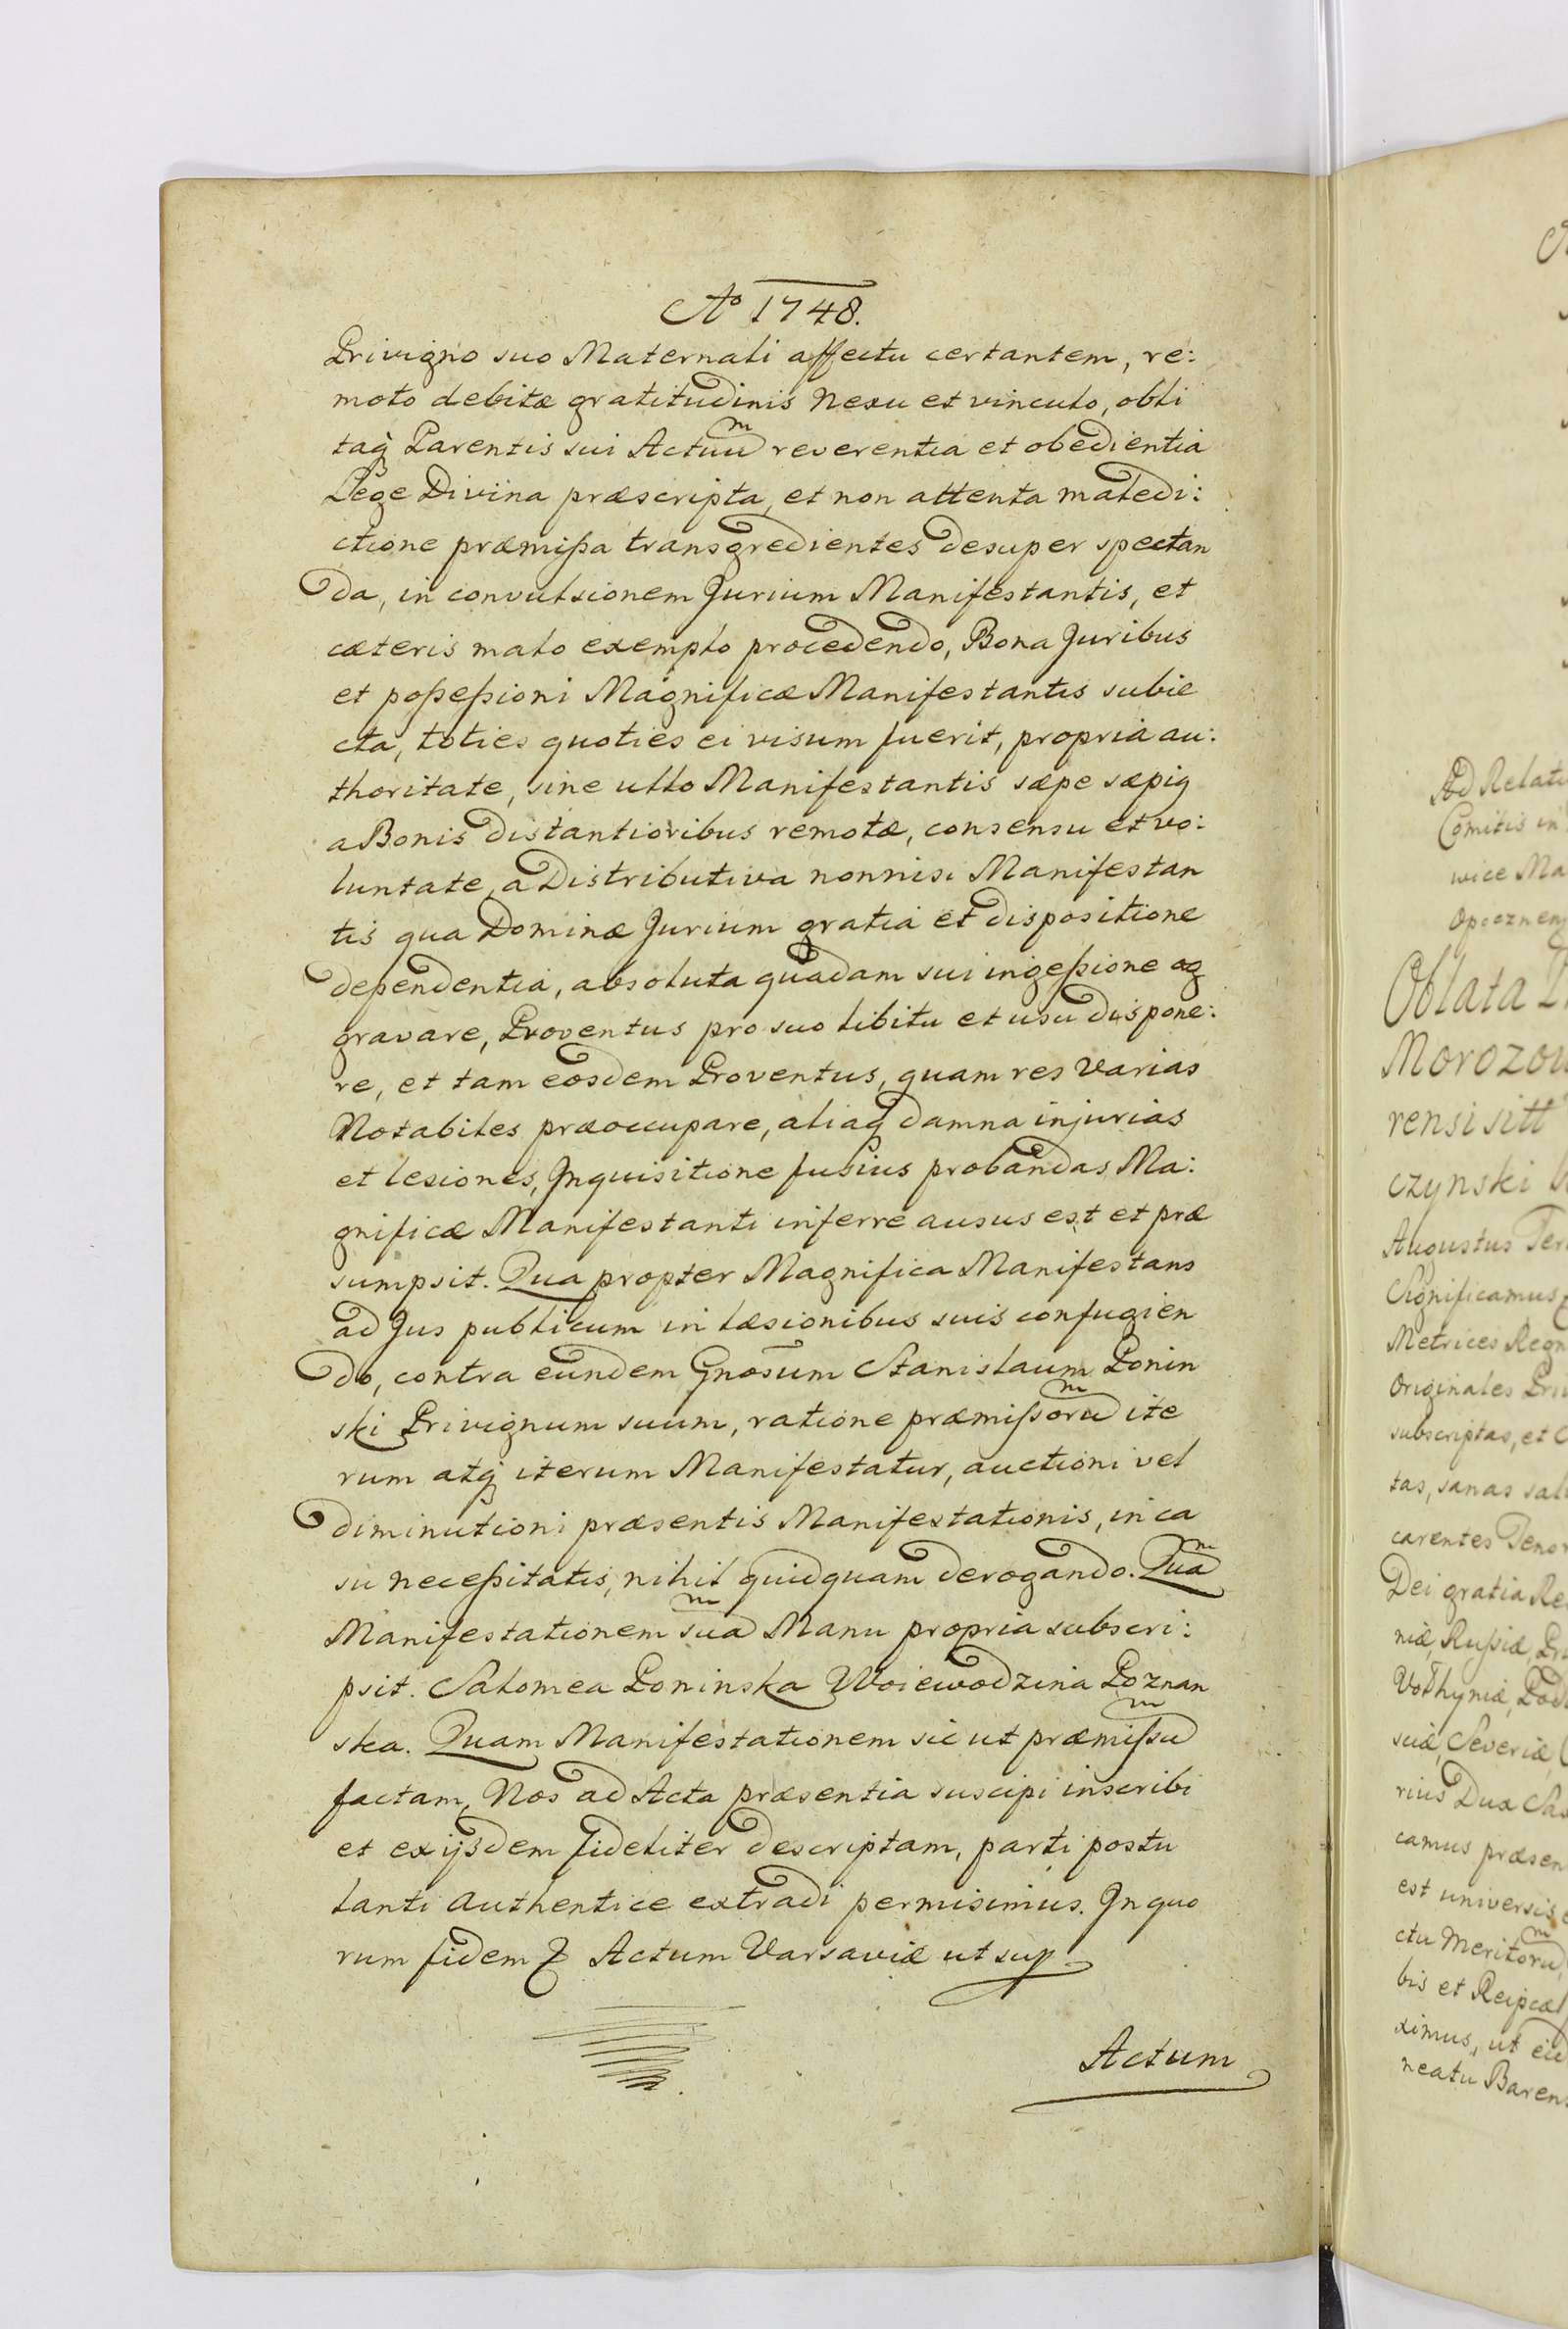 Aº 1748.
Privigno suo Maternali affectu certantem, re:
moto debitæ gratitudinis Nexu et vinculo, obli
taq Parentis sui Actuum reverentia et obedientia
Lege Divina præscripta, et non attenta maledi:
ctione præmißa transgredientes desuper spectan
da, in convulsionem Jurium Manifestantis, et
cæteris malo exemplo procedendo, Bona Juribus
et poßeßioni Magnificæ Manifestantis subie
cta, toties quoties ei visum fuerit, propria au:
thoritate, sine ullo Manifestantis sæpe sæpiq
a Bonis distantioribus remotæ, consensu et vo:
luntate, a Distributiva nonnisi Manifestan
tis qua Dominæ Jurium gratia et dispositione
dependentia, absoluta quadam sui ingeßione ag
gravare, Proventus pro suo libitu et usu dispone:
re, et tam eosdem Proventus, quam res Varias
Notabiles præoccupare, aliaq damna injurias
et lesiones, Inquisitione fusius probandas Ma:
gnificæ Manifestanti inferre ausus est et præ
sumpsit. Qua propter Magnifica Manifestans
ad Jus publicum in læsionibus suis confugien
do, contra eundem Gnosum Stanislaum Ponin
ski Privignum suum, ratione præmissorum ite
rum atq iterum Manifestatur, auctioni vel
diminutioni præsentis Manifestationis, in ca
su neceßitatis, nihil quidquam derogando. Quam
Manifestationem suam Manu propria subscri:
psit. Salomea Poninska Woiewodzina Poznan
ska. Quam Manifestationem sic ut præmissum
factam, Nos ad Acta præsentia suscipi inscribi
et ex ijsdem fideliter descriptam, parti postu
lanti authentice extradi permisimus. In quo
rum fidem Actum Varsaviæ ut sup
Actum
Ad Relati
Comitis in
wice Ma
Opoznen
Oblata
Morozow
rensi sitt
czynski
Augustus Ter
Significamus
Metrices Regn
Originales Pri
subscriptas, et
tas, sanas sal
carentes Tenor
Dei gratia Re
niæ, Rußiæ, Pr
Volhyniæ, Pod
suiæ, Severiæ
rius Dux Sa
camus præsen
est universis
ctu Meritorum
bis et Reipcæ
ximus, ut
neatu Baren